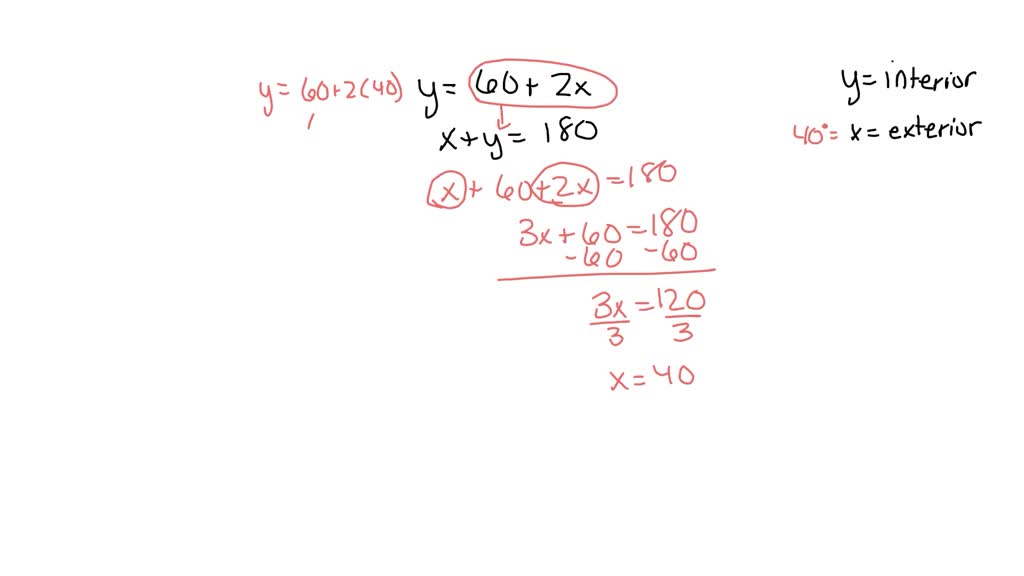 y = 60+2(40) y = 60 + 2x
x + y = 180
x + 60 + 2x = 180
3x + 60 = 180
-60 -60
3x = 120
3 3
x = 40
y = interior
40° = x = exterior